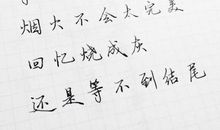 烟火不会太完美
回忆烧成灰
还是等不到结尾